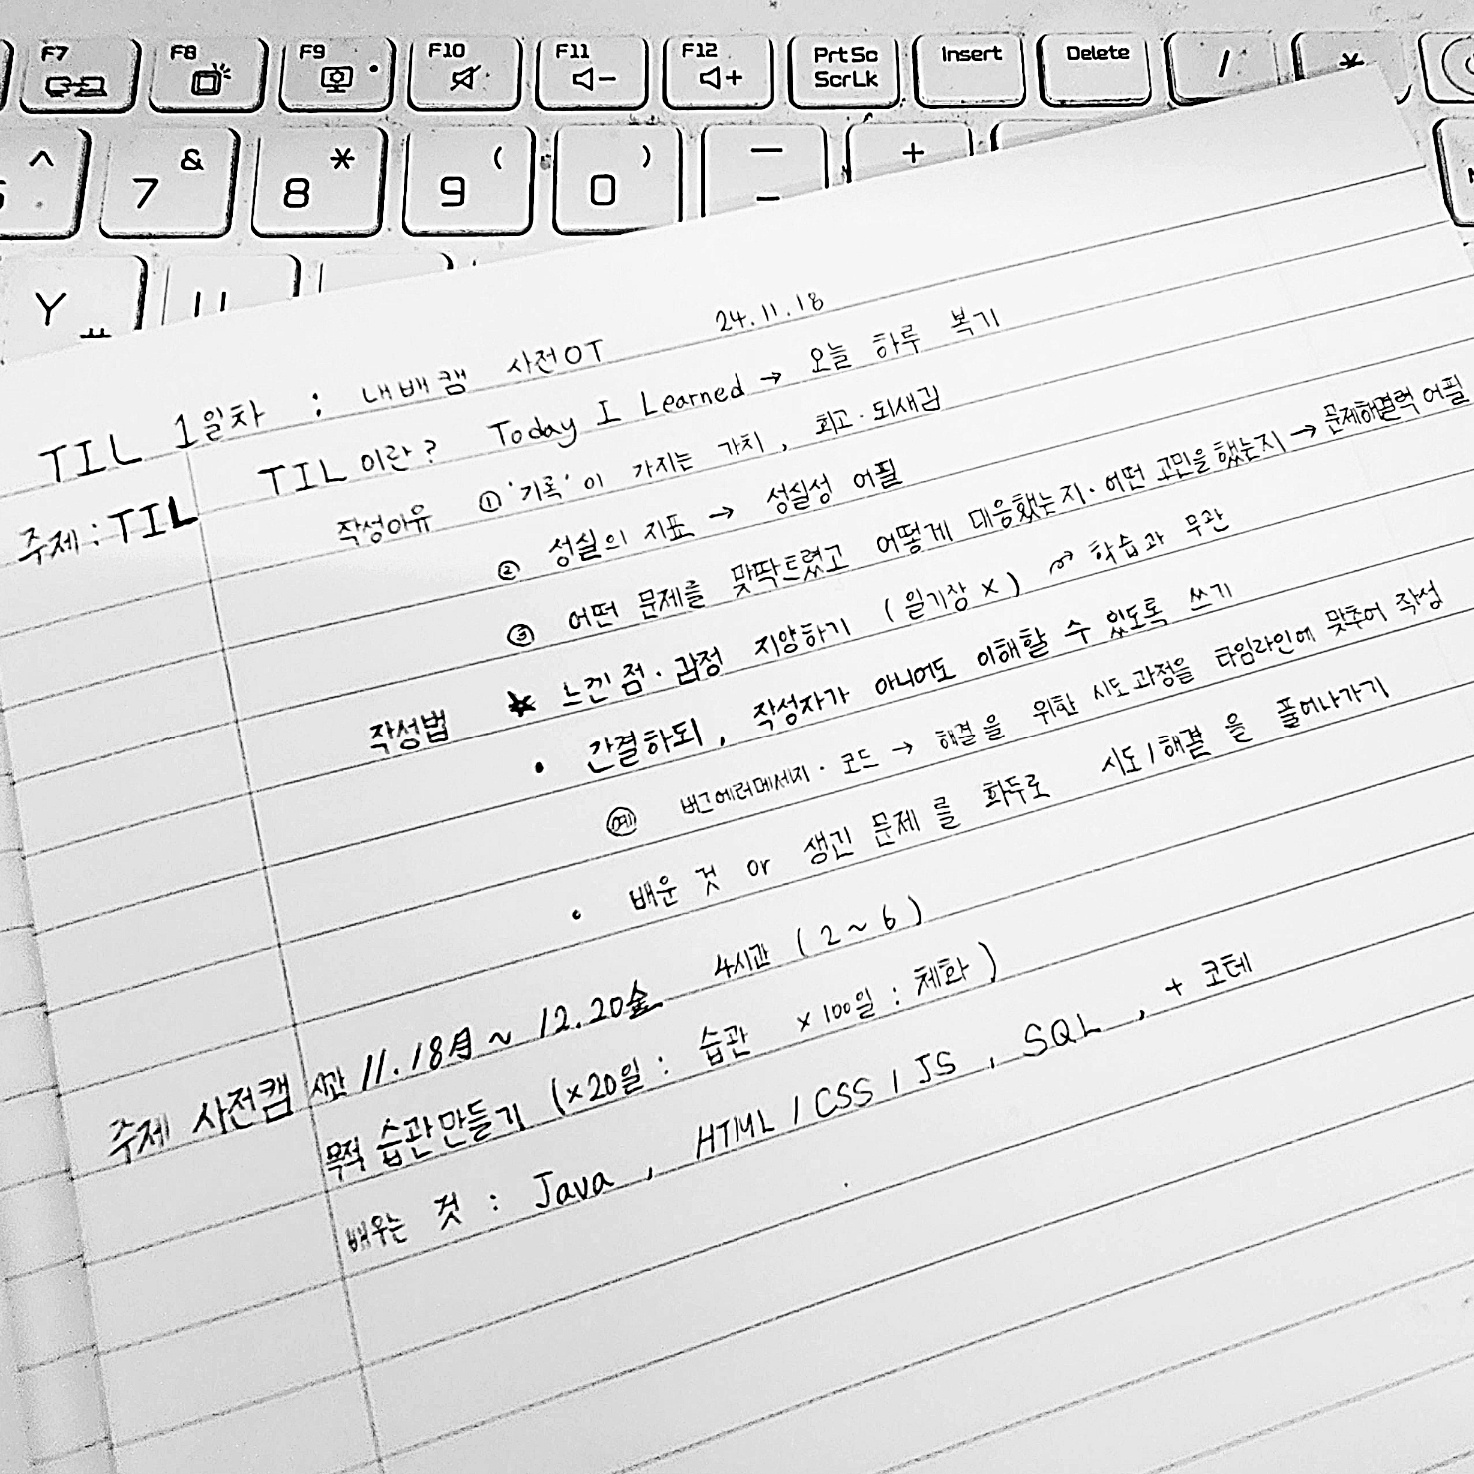 F7 F8 F9 F10 F11 F12 PrtSc ScrLk Insert Delete / *
^ & 7 * 8 ( 9 ) 0 — - +
Y ㅛ U
24.11.18
TIL 1일차 : 내배캠 사전OT
주제 : TIL
TIL이란? Today I Learned → 오늘 하루 복기
작성이유 ① '기록'이 가지는 가치, 회고·되새김
② 성실의 지표 → 성실성 어필
③ 어떤 문제를 맞딱트렸고 어떻게 대응했는지·어떤 고민을 했는지 → 문제해결력 어필
작성법 ★ 느낀점·감정 지양하기 (일기장 X) 학습과 무관
• 간결하되, 작성자가 아니어도 이해할 수 있도록 쓰기
예 버그에러메세지·코드 → 해결을 위한 시도과정을 타임라인에 맞추어 작성
• 배운 것 or 생긴 문제를 화두로 시도/해결을 풀어나가기
주제 사전캠 시간 11.18月 ~ 12.20金 4시간 (2~6)
목적 습관만들기 (x20일 : 습관 x100일 : 체화)
배우는 것 : Java, HTML / CSS / JS, SQL, + 코테